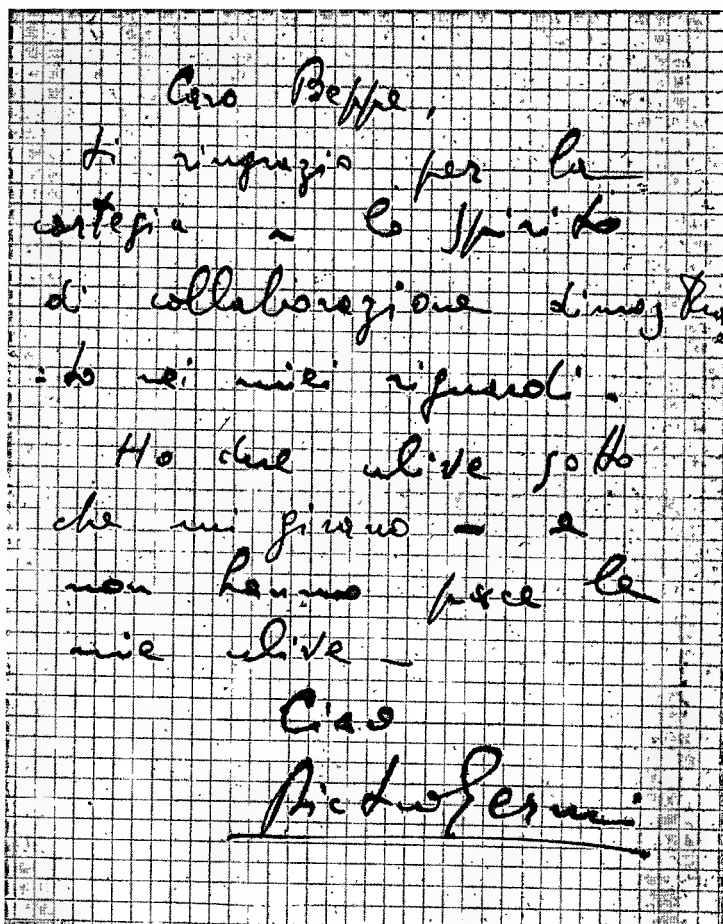 Caro Beppe,
ti ringrazio per la
cortesia e lo spirito
di collaborazione dimostra
:to nei miei riguardi.
Ho due ulive sotto
che mi girano - e
non hanno pace le
mie ulive -
Ciao
Pietro Germi